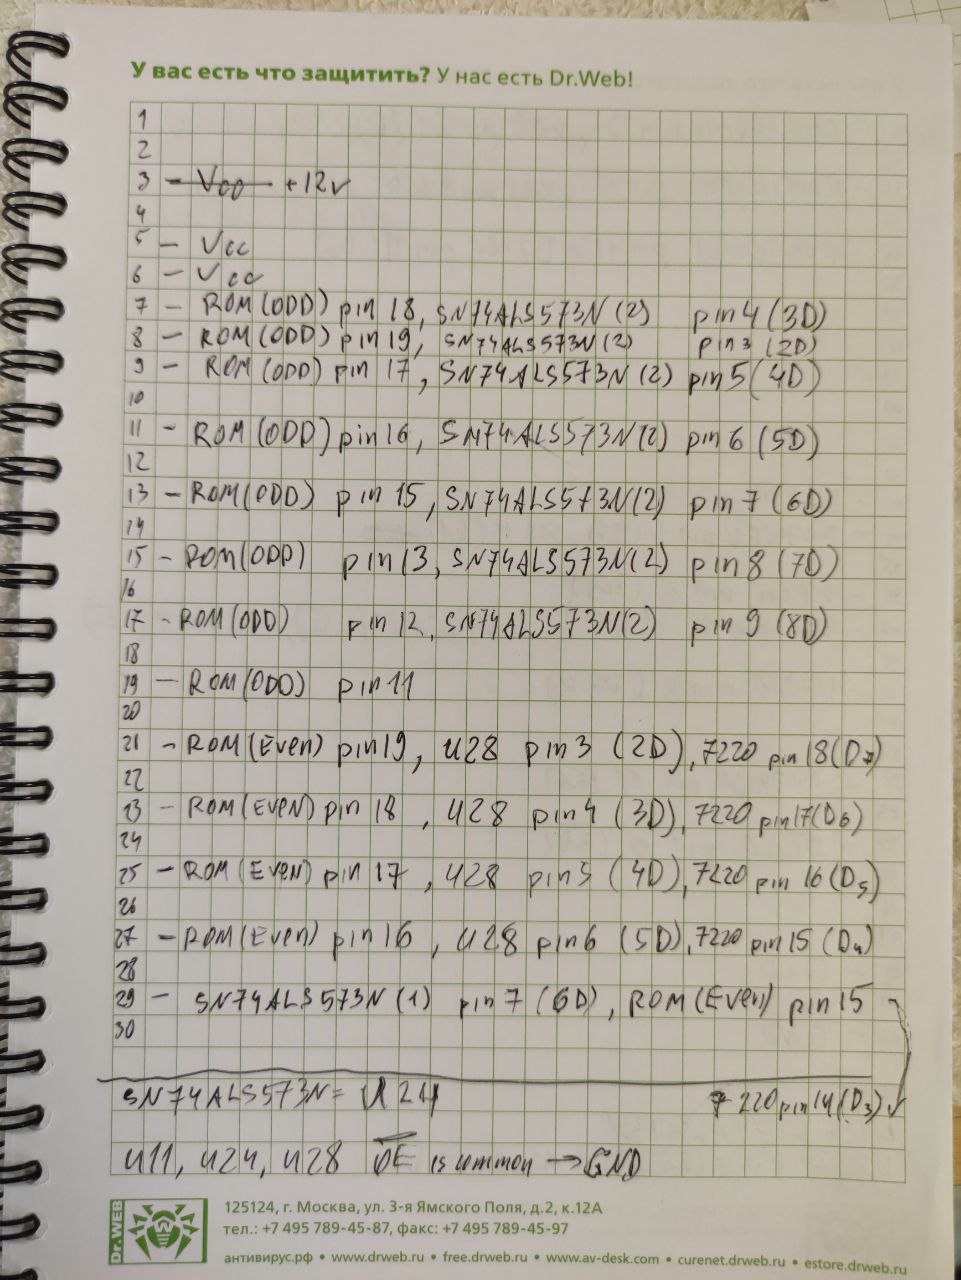 У вас есть что защитить? У нас есть Dr.Web!
1
2
3 - VDD +12v
4
5 - Vcc
6 - Vcc
7 - ROM(ODD) pin 18, SN74ALS573N(2) pin4(3D)
8 - ROM(ODD) pin19, SN74ALS573N(2) pin3 (2D)
9 - ROM(ODD) pin 17, SN74ALS573N(2) pin5(4D)
10
11 - ROM(ODD) pin16, SN74ALS573N(2) pin6 (5D)
12
13 - ROM(ODD) pin 15, SN74ALS573N(2) pin7 (6D)
14
15 - ROM(ODD) pin13, SN74ALS573N(2) pin8 (7D)
16
17 - ROM(ODD) pin 12, SN74ALS573N(2) pin 9 (8D)
18
19 - ROM(ODD) pin11
20
21 - ROM(Even) pin19, U28 pin3 (2D), 7220 pin 18(D7)
22
23 - ROM(EVEN) pin 18, U28 pin4 (3D), 7220 pin17(D6)
24
25 - ROM(Even) pin 17, U28 pin5 (4D), 7220 pin 16(D5)
26
27 - ROM(Even) pin16, U28 pin6 (5D), 7220 pin15 (D4)
28
29 - SN74ALS573N(1) pin7 (6D), ROM(Even) pin15
30
SN74ALS573N = U24 7220 pin14(D3)
U11, U24, U28 OE is common → GND
Dr.WEB
125124, г. Москва, ул. 3-я Ямского Поля, д.2, к.12А
тел.: +7 495 789-45-87, факс: +7 495 789-45-97
антивирус.рф • www.drweb.ru • free.drweb.ru • www.av-desk.com • curenet.drweb.ru • estore.drweb.ru